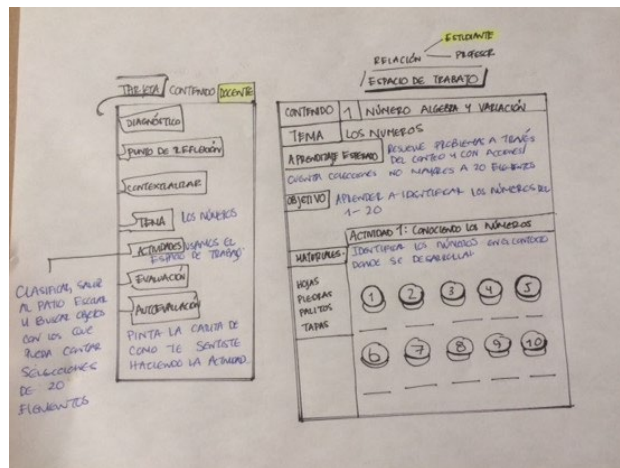 TARJETA CONTENIDO DOCENTE
DIAGNÓSTICO
PUNTO DE REFLEXIÓN
CONTEXTUALIZAR
TEMA LOS NÚMEROS
ACTIVIDADES USAMOS EL
ESPACIO DE TRABAJO.
EVALUACIÓN
AUTOEVALUACIÓN
PINTA LA CARITA DE
COMO TE SENTISTE
HACIENDO LA ACTIVIDAD.
CLASIFICAR, SALIR
AL PATIO ESCOLAR
Y BUSCAR OBJETOS
CON LOS QUE
PUEDA CONTAR
SELECCIONES
DE 20
ELEMENTOS
ESTUDIANTE
RELACIÓN PROFESOR
ESPACIO DE TRABAJO
CONTENIDO 1 NÚMERO ALGEBRA Y VARIACIÓN
TEMA LOS NUMEROS
APRENDIZAJE ESPERADO RESUELVE PROBLEMAS A TRAVÉS
DEL CONTEO Y CON ACCIONES
CUENTA COLECCIONES NO MAYORES A 20 ELEMENTOS
OBJETIVO APRENDER A IDENTIFICAR LOS NÚMEROS DEL
1-20
ACTIVIDAD 1: CONOCIENDO LOS NÚMEROS
MATERIALES. IDENTIFICA LOS NÚMEROS EN EL CONTEXTO
DONDE SE DESARROLLA
HOJAS
PIEDRAS
PALITOS
TAPAS
1 2 3 4 5
6 7 8 9 10